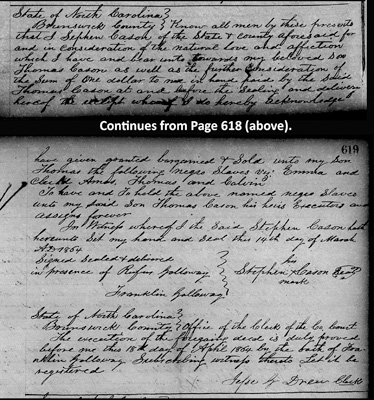 State of North Carolina }
Brunswick County } Know all men by these presents
that I Stephen Cason of the State & county aforesaid for
and in consideration of the natural love and affection
which I have and bear unto towards my beloved Son
Thomas Cason as well as the further consideration of
the Sum of One dollar to me in hand paid by the Said
Thomas Cason at and before the Sealing and delivery
hereof the receipt whereof I do hereby acknowledged
Continues from Page 618 (above).
619
have given granted bargained & Sold unto my son
Thomas the following negro Slaves viz: Emma and
child Amos, Thomas and Calvin
To have and To hold the above named negro Slaves
unto my said Son Thomas Cason his heirs Executors and
assigns forever
In Witness whereof I the Said Stephen Cason hath
hereunto Set my hand and Seal this 14th day of March
A.D. 1864
Signed Sealed & delivered } his
in presence of Rufus Galloway } Stephen X Cason Seal
mark
Franklin Galloway }
State of North Carolina }
Brunswick County } Office of the Clerk of the Co Court
The execution of the foregoing deed is duly proved
before me this 18th day of April 1864 by the oath of Fra-
nklin Galloway Subscribing witness thereto Let it be
registered
Clerk